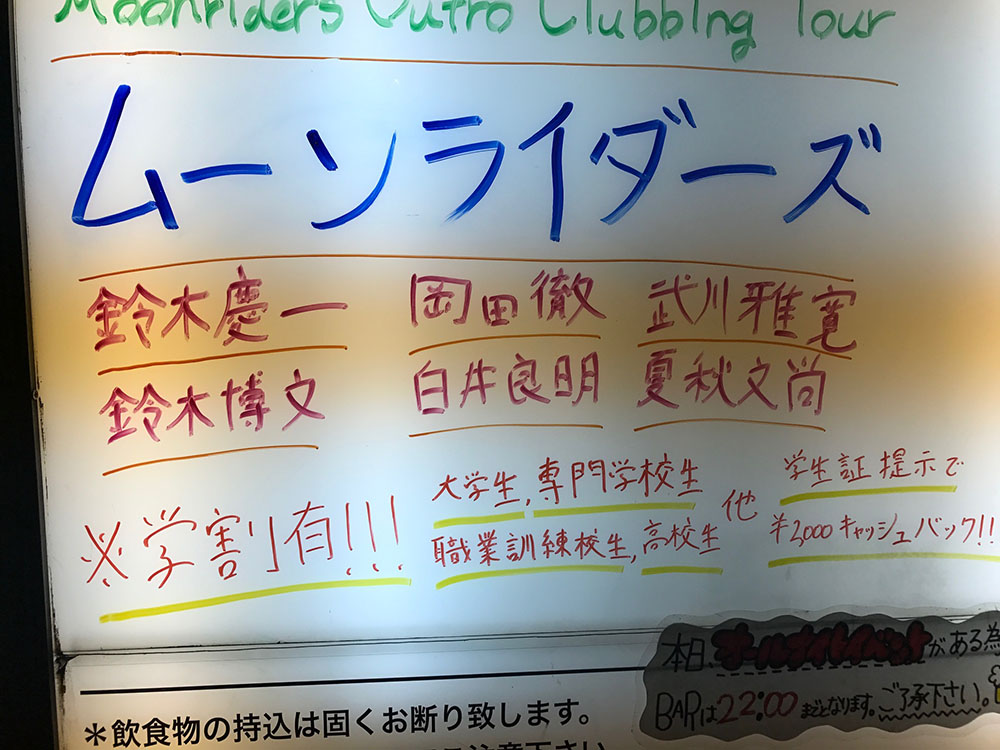 Moonriders Outro Clubbing Tour
ムーンライダーズ
鈴木慶一 岡田徹 武川雅寛
鈴木博文 白井良明 夏秋文尚
※学割有!!!
大学生,専門学校生
職業訓練校生,高校生 他
学生証提示で
¥2,000キャッシュバック!!
本日、オールナイトイベントがある為
BARは22:00までとなります。ご了承下さい。
＊飲食物の持込は固くお断り致します。